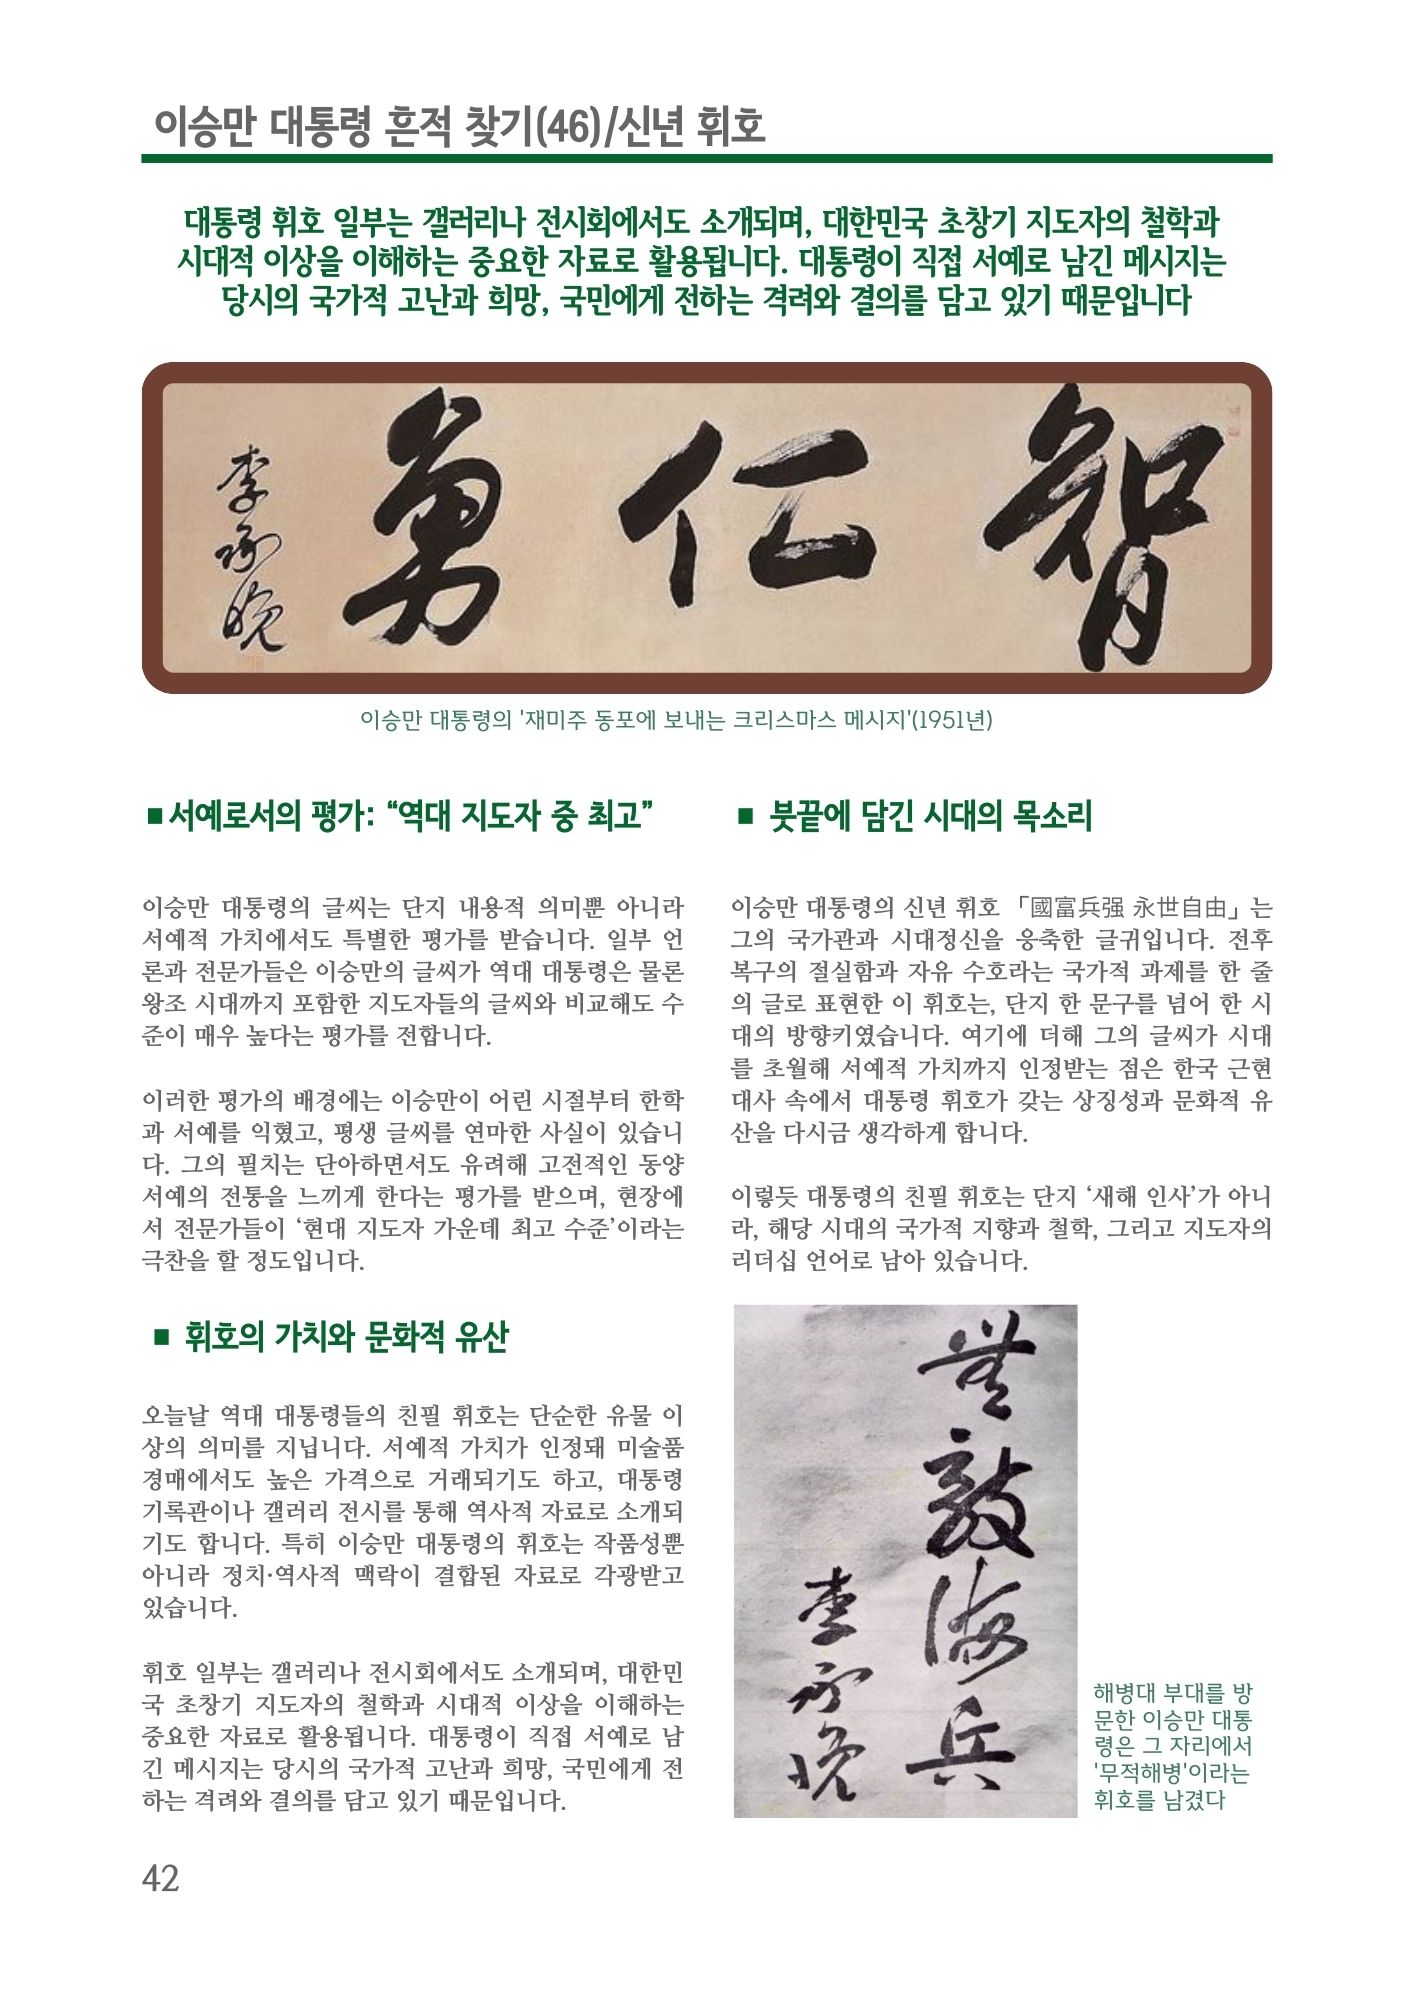 이승만 대통령 흔적 찾기(46)/신년 휘호
대통령 휘호 일부는 갤러리나 전시회에서도 소개되며, 대한민국 초창기 지도자의 철학과
시대적 이상을 이해하는 중요한 자료로 활용됩니다. 대통령이 직접 서예로 남긴 메시지는
당시의 국가적 고난과 희망, 국민에게 전하는 격려와 결의를 담고 있기 때문입니다
智仁勇
李承晩
이승만 대통령의 '재미주 동포에 보내는 크리스마스 메시지'(1951년)
■ 서예로서의 평가: “역대 지도자 중 최고”
이승만 대통령의 글씨는 단지 내용적 의미뿐 아니라
서예적 가치에서도 특별한 평가를 받습니다. 일부 언
론과 전문가들은 이승만의 글씨가 역대 대통령은 물론
왕조 시대까지 포함한 지도자들의 글씨와 비교해도 수
준이 매우 높다는 평가를 전합니다.
이러한 평가의 배경에는 이승만이 어린 시절부터 한학
과 서예를 익혔고, 평생 글씨를 연마한 사실이 있습니
다. 그의 필치는 단아하면서도 유려해 고전적인 동양
서예의 전통을 느끼게 한다는 평가를 받으며, 현장에
서 전문가들이 ‘현대 지도자 가운데 최고 수준’이라는
극찬을 할 정도입니다.
■ 휘호의 가치와 문화적 유산
오늘날 역대 대통령들의 친필 휘호는 단순한 유물 이
상의 의미를 지닙니다. 서예적 가치가 인정돼 미술품
경매에서도 높은 가격으로 거래되기도 하고, 대통령
기록관이나 갤러리 전시를 통해 역사적 자료로 소개되
기도 합니다. 특히 이승만 대통령의 휘호는 작품성뿐
아니라 정치·역사적 맥락이 결합된 자료로 각광받고
있습니다.
휘호 일부는 갤러리나 전시회에서도 소개되며, 대한민
국 초창기 지도자의 철학과 시대적 이상을 이해하는
중요한 자료로 활용됩니다. 대통령이 직접 서예로 남
긴 메시지는 당시의 국가적 고난과 희망, 국민에게 전
하는 격려와 결의를 담고 있기 때문입니다.
■ 붓끝에 담긴 시대의 목소리
이승만 대통령의 신년 휘호 「國富兵强 永世自由」는
그의 국가관과 시대정신을 응축한 글귀입니다. 전후
복구의 절실함과 자유 수호라는 국가적 과제를 한 줄
의 글로 표현한 이 휘호는, 단지 한 문구를 넘어 한 시
대의 방향키였습니다. 여기에 더해 그의 글씨가 시대
를 초월해 서예적 가치까지 인정받는 점은 한국 근현
대사 속에서 대통령 휘호가 갖는 상징성과 문화적 유
산을 다시금 생각하게 합니다.
이렇듯 대통령의 친필 휘호는 단지 ‘새해 인사’가 아니
라, 해당 시대의 국가적 지향과 철학, 그리고 지도자의
리더십 언어로 남아 있습니다.
無敵海兵
李承晩
해병대 부대를 방
문한 이승만 대통
령은 그 자리에서
'무적해병'이라는
휘호를 남겼다
42